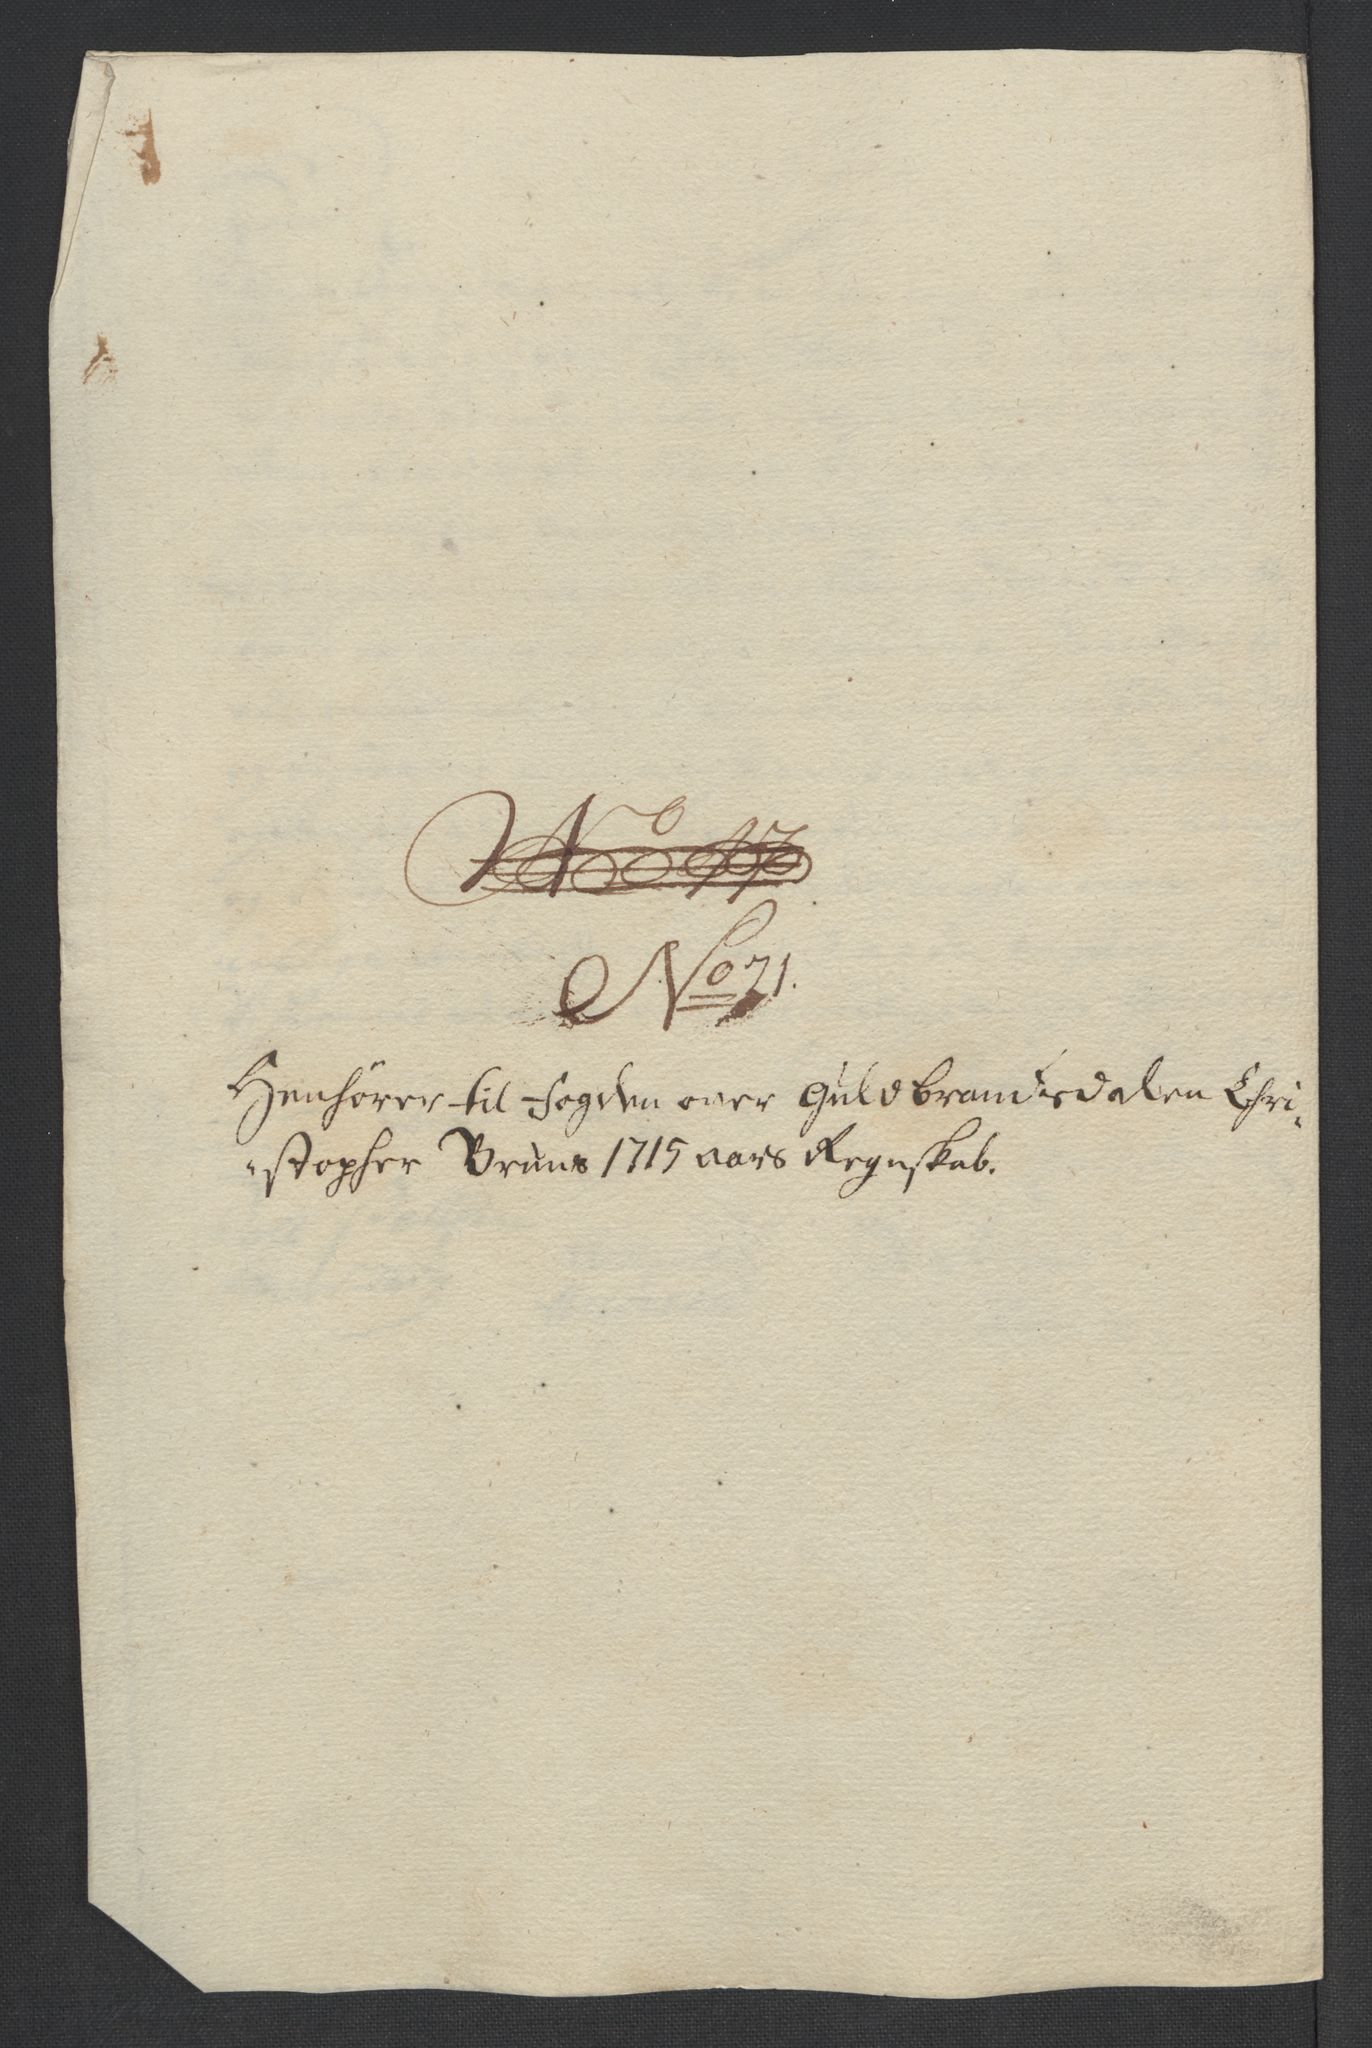 No
No 21.
Henhörer til fogden over Guldbrandsdalen Chri-
-stopher Bruns 1715 aars Regnskab.